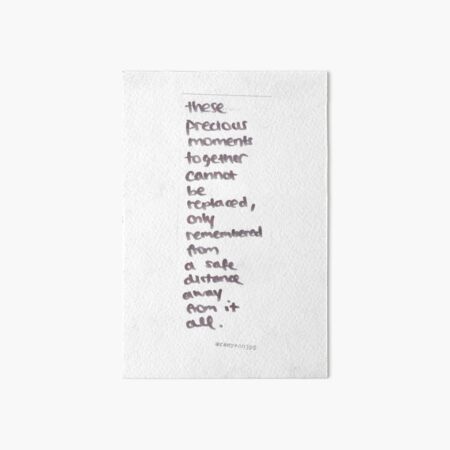 these
precious
moments
together
cannot
be
replaced,
only
remembered
from
a safe
distance
away
from it
all.